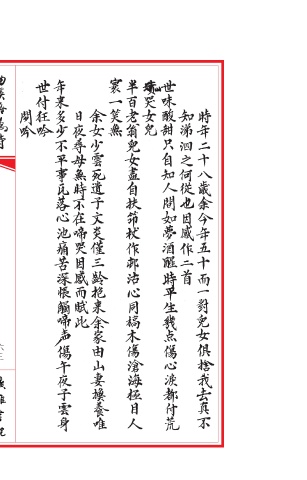 時年二十八歲余今年五十而一對兒女俱捨我去真不
知涕泗之何從也因感作二首
世味酸甜只自知人間如夢酒醒時平生幾点傷心淚都付荒
墳哭女兒
半百老翁兒女盡自扶筇杖作郵治心同槁木傷滄海極目人
寰一笑無
余女少雲死遺子文炎僅三齡抱来余家由山妻撫養唯
日夜尋母無時不在啼哭因感而賦此
年来多少不平事瓦落心池痛苦深悵觸啼声傷午夜子雲身
世付狂吟
閒吟
六三